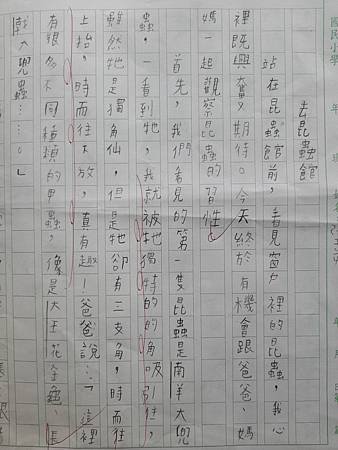 去昆蟲館
站在昆蟲館前，看見窗戶裡的昆蟲，我心
裡既興奮又期待。今天終於有機會跟爸爸、媽
媽一起觀察昆蟲的習性。
首先，我們看見的第一隻昆蟲是南洋大兜
蟲，一看到牠，我就被牠獨特的的角吸引住，
雖然牠是獨角仙，但是牠卻有三支角，時而往
上抬，時而往下放，真有趣！爸爸說：「這裡
有很多不同種類的甲蟲，像是大王花金龜、長
戟大兜蟲……。」
國民小學
年